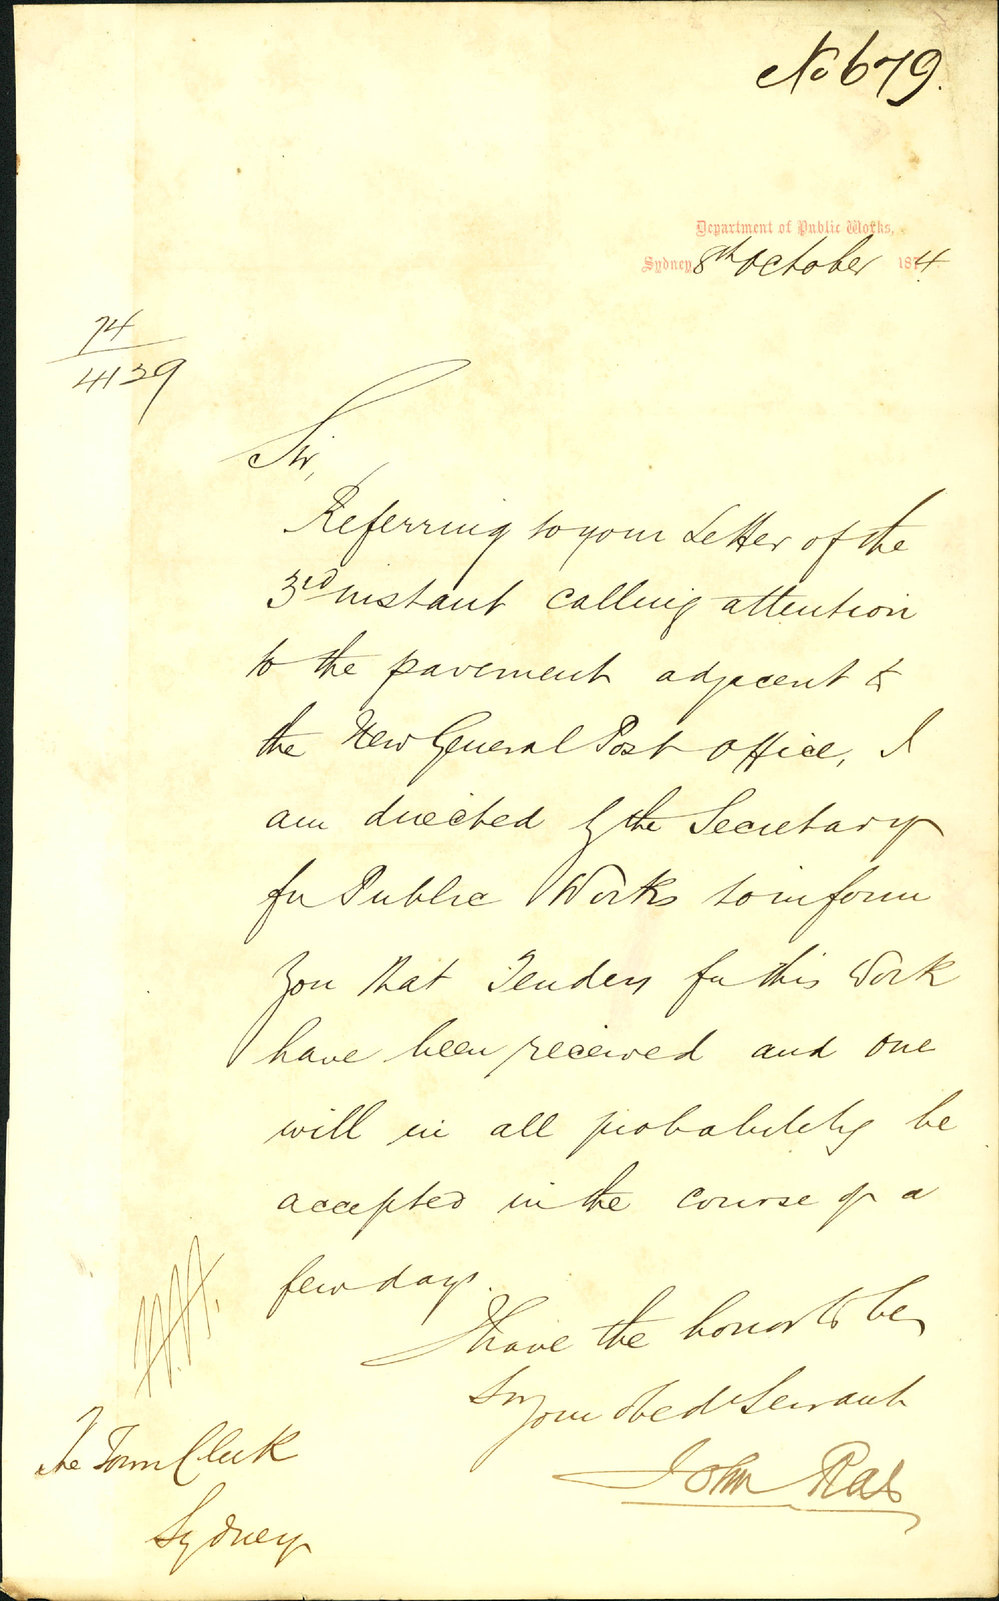 No 679.
Department of Public Works,
Sydney 8th October 1874
74
4139
Sir,
Referring to your Letter of the
3rd instant calling attention
to the pavement adjacent to
the New General Post Office, I
am directed by the Secretary
for Public Works to inform
you that Tenders for this Work
have been received and one
will in all probability be
accepted in the course of a
few days.
I have the honor to be,
Sir
Your obedt Servant
John Rae
The Town Clerk
Sydney